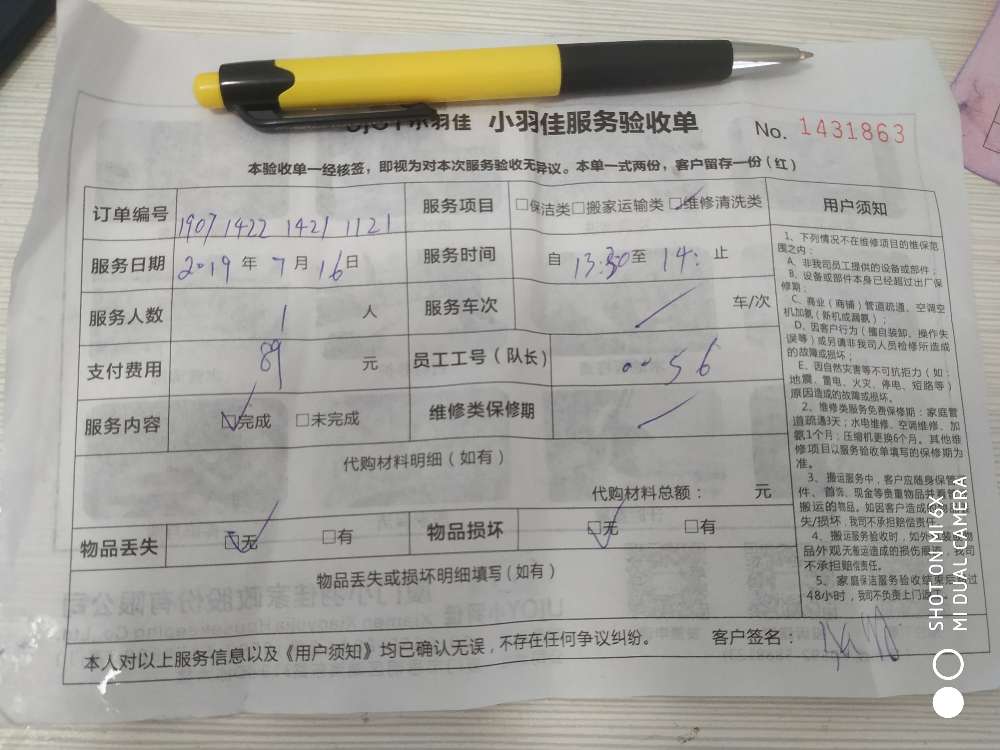 小羽佳 小羽佳服务验收单
No. 1431863
本验收单一经核签，即视为对本次服务验收无异议。本单一式两份，客户留存一份（红）
订单编号 1907 1422 1421 1121 服务项目 □保洁类□搬家运输类□维修清洗类
服务日期 2019 年 7 月 16 日 服务时间 自 13:30 至 14: 止
服务人数 1 人 服务车次 车/次
支付费用 89 元 员工工号（队长） 0056
服务内容 □完成 □未完成 维修类保修期
代购材料明细（如有）
代购材料总额： 元
物品丢失 □无 □有 物品损坏 □无 □有
物品丢失或损坏明细填写（如有）
本人对以上服务信息以及《用户须知》均已确认无误，不存在任何争议纠纷。 客户签名：
用户须知
1、下列情况不在维修项目的维保范
围之内：
A、非我司员工提供的设备或部件；
B、设备或部件本身已经超过出厂保
修期；
C、商业（商铺）管道疏通、空调空
机加氨（新机或漏氨）；
D、因客户行为（擅自装卸、操作失
误等）或另请非我司人员检修所造成
的故障或损坏；
E、因自然灾害等不可抗拒力（如：
地震、雷电、火灾、停电、短路等）
原因造成的故障或损坏。
2、维修类服务免费保修期：家庭管
道疏通3天；水电维修、空调维修、加
氨1个月；压缩机更换6个月。其他维
修项目以服务验收单填写的保修期为
准。
3、搬运服务中，客户应随身保管
件、首饰、现金等贵重物品并
搬运的物品。如因客户造成的
失/损坏，我司不承担赔偿责任。
4、搬运服务验收时，如外
品外观无搬运造成的损伤 我司
不承担赔偿责任。
5、家庭保洁服务验收结束后 过
48小时，我司不负责上门
SHOT ON MI 6X
MI DUAL CAMERA